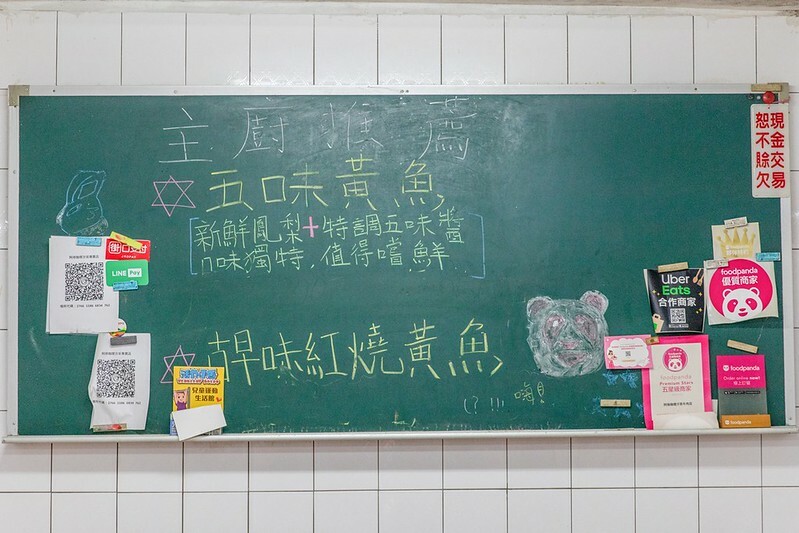 主廚推薦
五味黃魚
新鮮鳳梨+特調五味醬
口味獨特，值得嚐鮮
古早味紅燒黃魚
(? !!!
嗨!
現金交易
恕不賒欠
街口支付
JKOPAY
LINE Pay
兒童運動
生活館
Uber
Eats
合作商家
foodpanda
優質商家
foodpanda
Premium Stars
五星級商家
foodpanda
Order online now!
線上訂餐
foodpanda